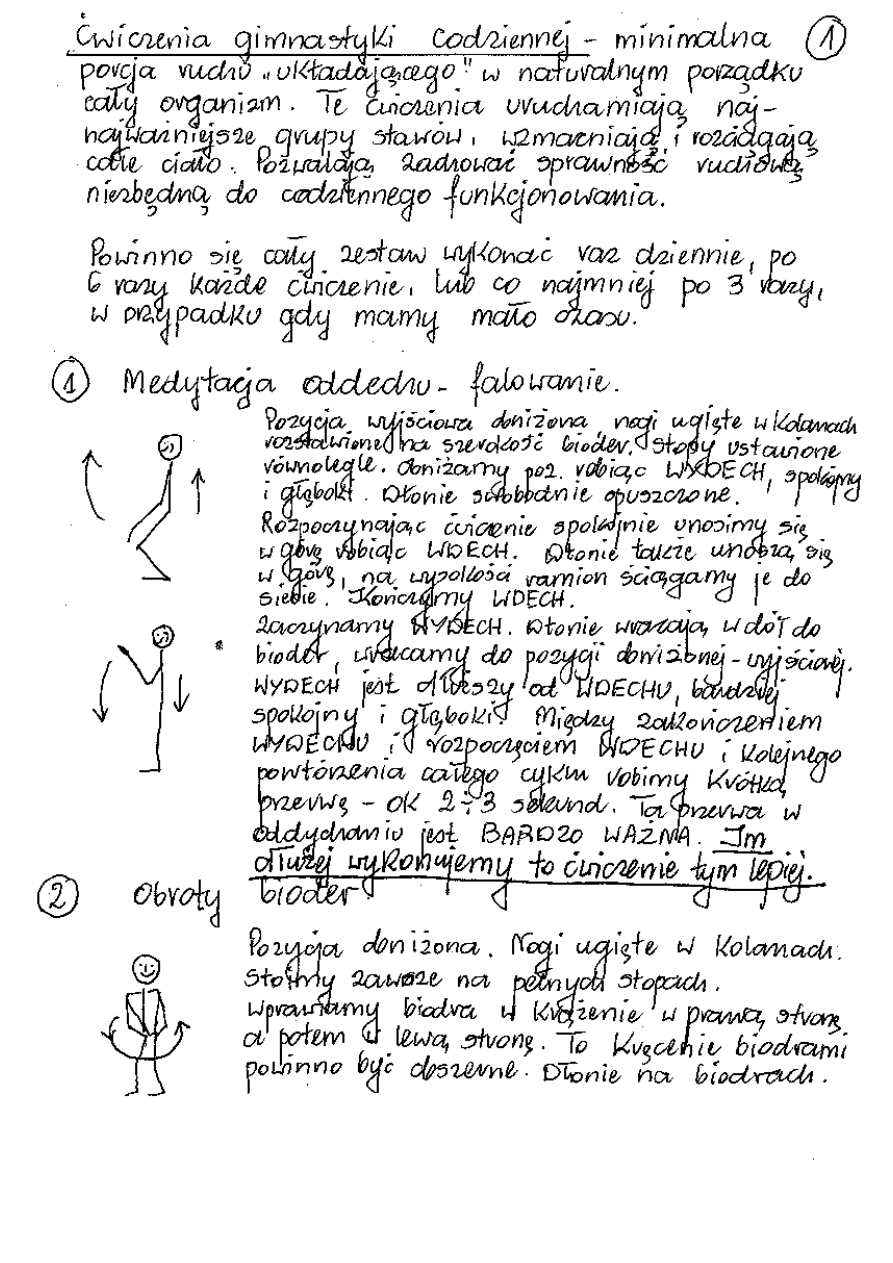 Ćwiczenia gimnastyki codziennej - minimalna ①
porcja ruchu „układającego" w naturalnym porządku
cały organizm. Te ćwiczenia uruchamiają naj-
najważniejsze grupy stawów, wzmacniają i rozciągają
całe ciało. Pozwalają zachować sprawność ruchową
niezbędną do codziennego funkcjonowania.
Powinno się cały zestaw wykonać raz dziennie, po
6 razy każde ćwiczenie, lub co najmniej po 3 razy,
w przypadku gdy mamy mało czasu.
① Medytacja oddechu - falowanie.
Pozycja wyjściowa obniżona, nogi ugięte w kolanach
rozstawione na szerokość bioder. Stopy ustawione
równolegle. Obniżamy poz. robiąc WYDECH, spokojny
i głęboki. Dłonie swobodnie opuszczone.
Rozpoczynając ćwiczenie spokojnie unosimy się
w górę robiąc WDECH. Dłonie także unoszą się
w górę, na wysokości ramion ściągamy je do
siebie. Kończymy WDECH.
Zaczynamy WYDECH. Dłonie wracają w dół do
bioder, wracamy do pozycji obniżonej - wyjściowej.
WYDECH jest dłuższy od WDECHU, bardziej
spokojny i głęboki. Między zakończeniem
WYDECHU i rozpoczęciem WDECHU i kolejnego
powtórzenia całego cyklu robimy krótką
przerwę - ok 2÷3 sekund. Ta przerwa w
oddychaniu jest BARDZO WAŻNA. Im
dłużej wykonujemy to ćwiczenie tym lepiej.
② Obroty bioder
Pozycja obniżona. Nogi ugięte w kolanach.
Stoimy zawsze na pełnych stopach.
Wprawiamy biodra w krążenie w prawą stronę
a potem w lewą stronę. To kręcenie biodrami
powinno być obszerne. Dłonie na biodrach.